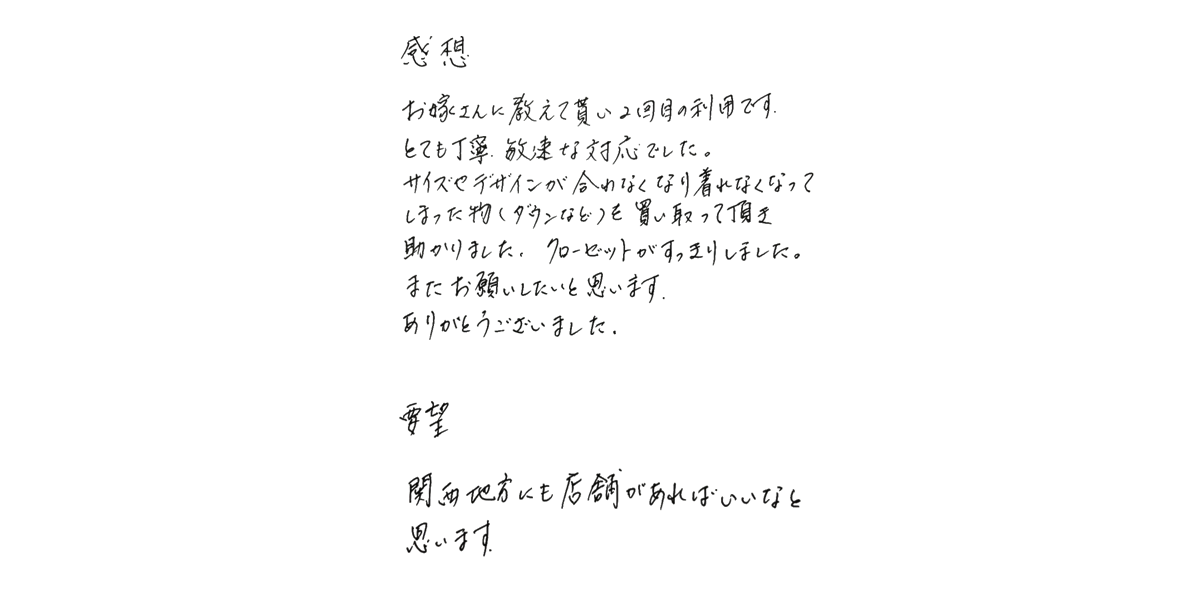 感想
お嫁さんに教えて貰い2回目の利用です.
とても丁寧.敏速な対応でした。
サイズやデザインが合わなくなり着れなくなって
しまった物(ダウンなど)を買い取って頂き
助かりました.クローゼットがすっきりしました。
またお願いしたいと思います.
ありがとうございました.
要望
関西地方にも店舗があればいいなと
思います.